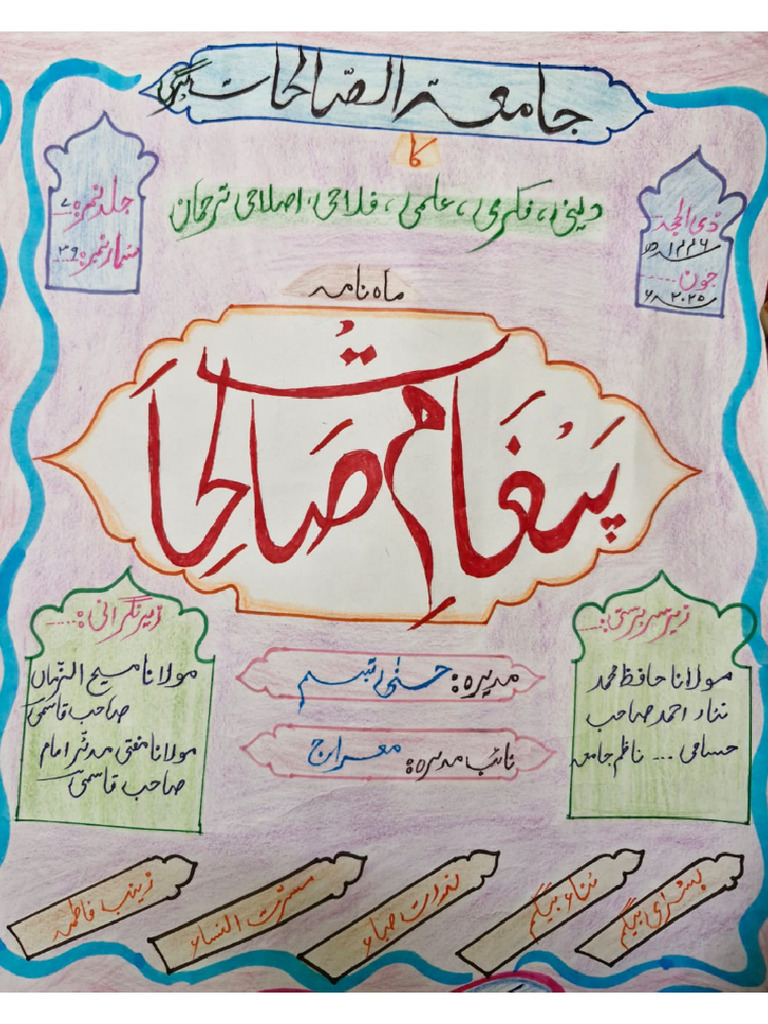 جامعۃ الصّالحات
کا
دینی، فکری، علمی، فلاحی، اصلاحی ترجمان
ذی الحجہ
۱۴۴۶ھ
جون
۲۰۲۵ء
جلد نمبر: ۷
شمارہ نمبر: ۳۹
ماہ نامہ
پَیْغَامِ صَالِحَاتُ
زیر سرپرستی:
مولانا حافظ محمد
ثناء احمد صاحب
حسامی ... ناظم جامعہ
زیر نگرانی:
مولانا مسیح الزّماں
صاحب قاسمی
مولانا مفتی مدثر امام
صاحب قاسمی
مدیرہ: حسنٰی تبسم
نائب مدیرہ: معراج
بشریٰ بیگم
ثناء بیگم
ندرت صباء
مسرت النساء
زینب فاطمہ